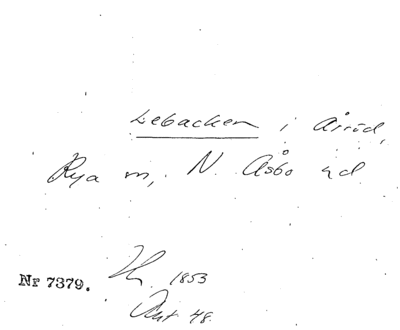 Lebacken i Årröd,
Rya sn, N. Åsbo hd
Nr 7379. 1853
Ant 48.